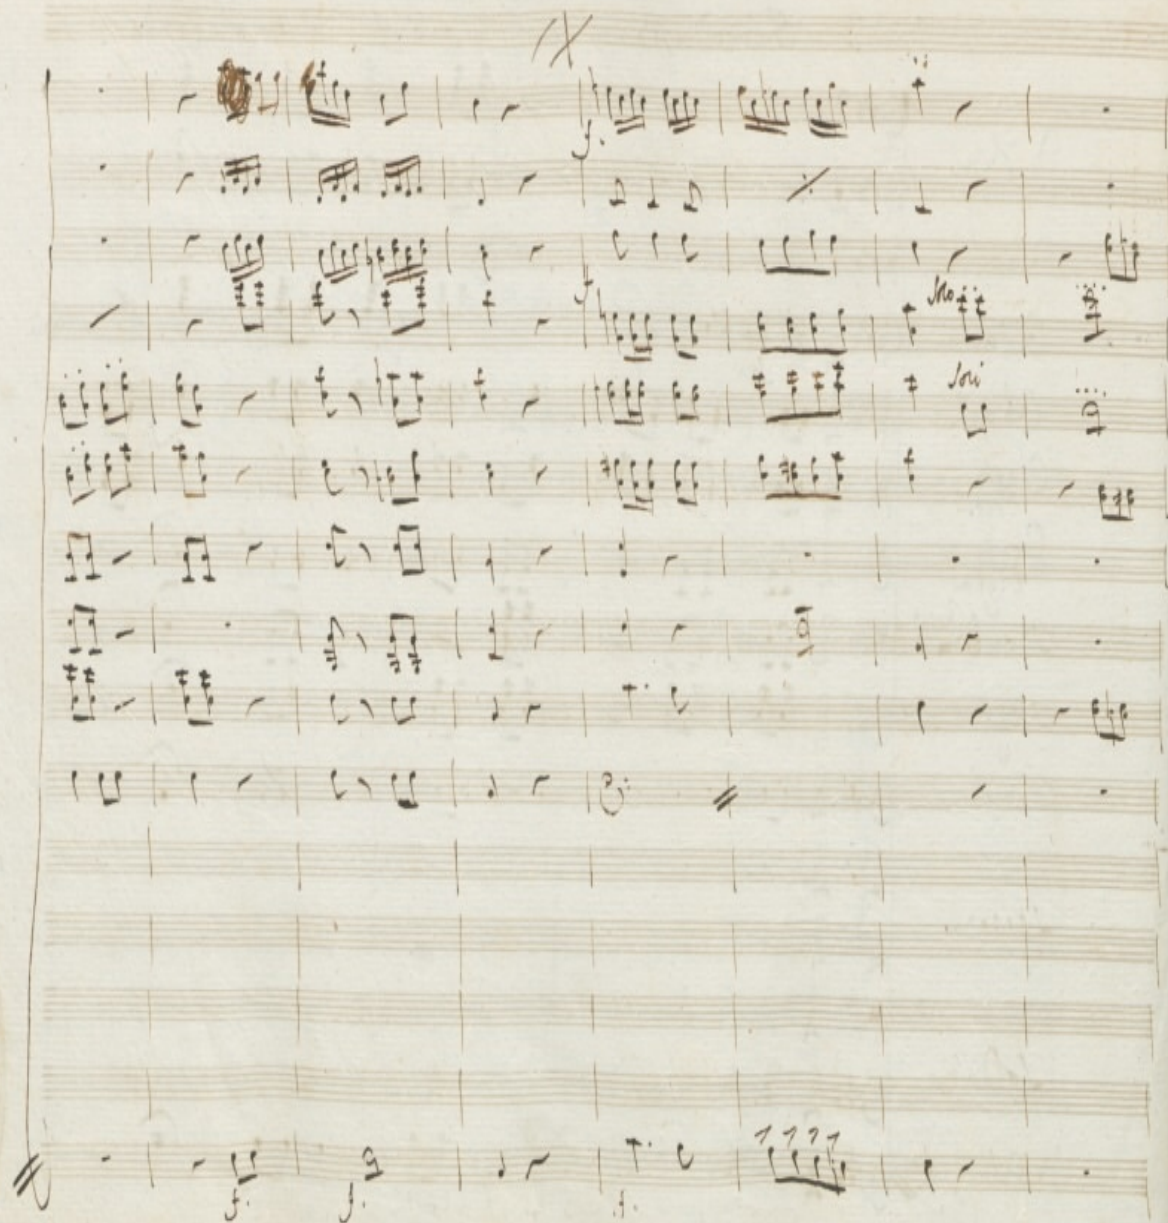 f.
f
Solo
Soli
f. f. f.